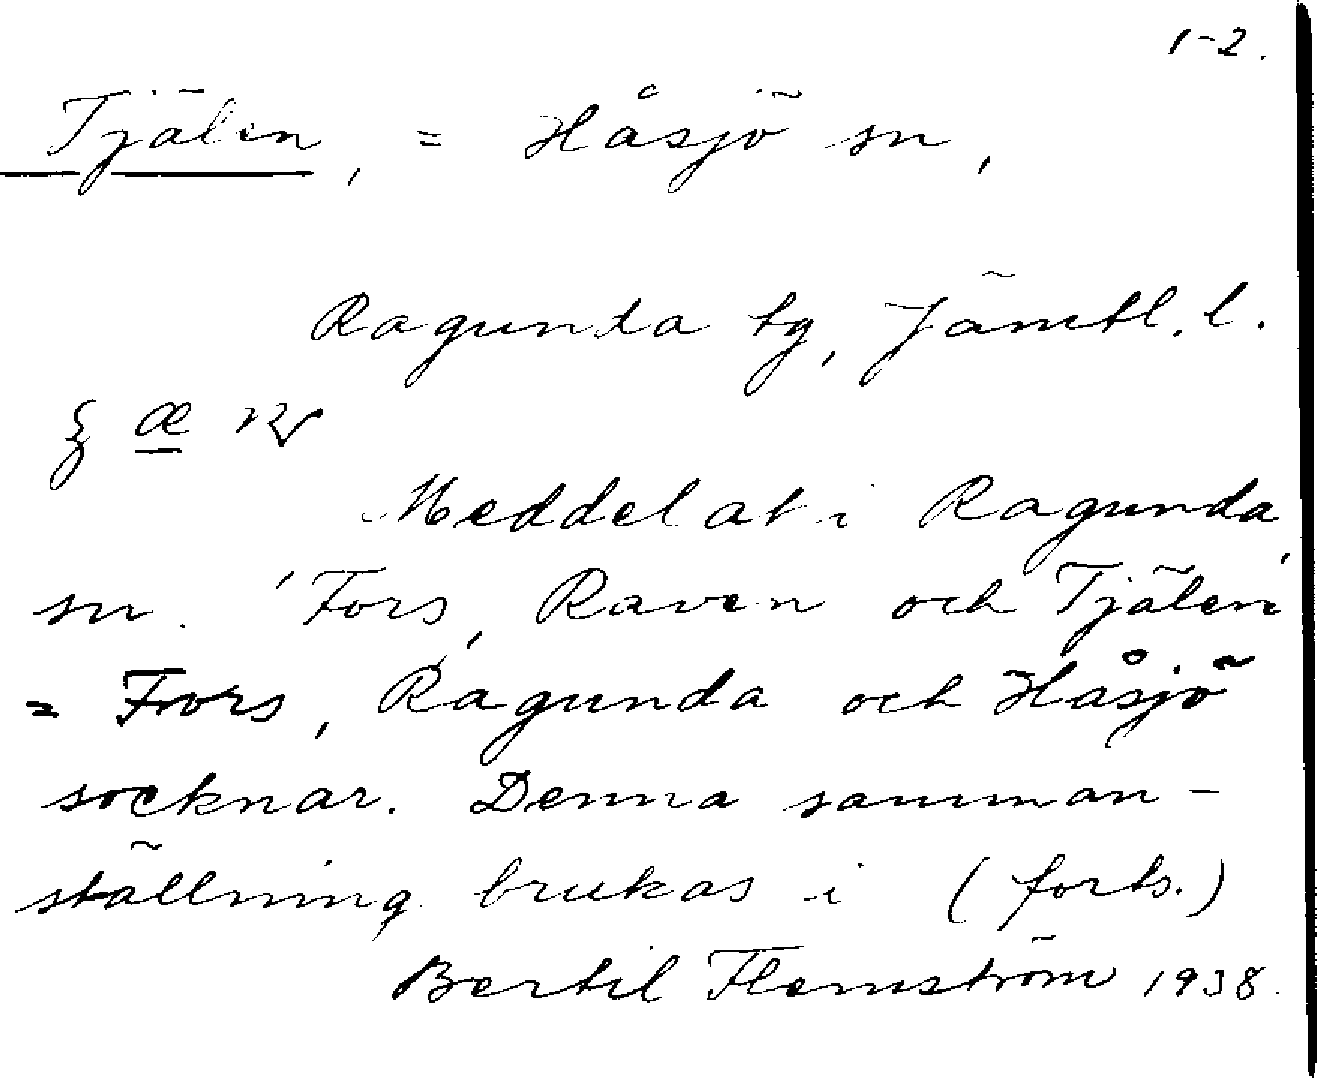 1-2.
Tjälen, = Håsjö sn,
Ragunda tg, Jämtl. l.
Meddelat i Ragunda
sn. 'Fors, Raven och Tjälen'
= Fors, Ragunda och Håsjö
socknar. Denna samman-
ställning brukas i (forts.)
Bertil Flemström 1938.